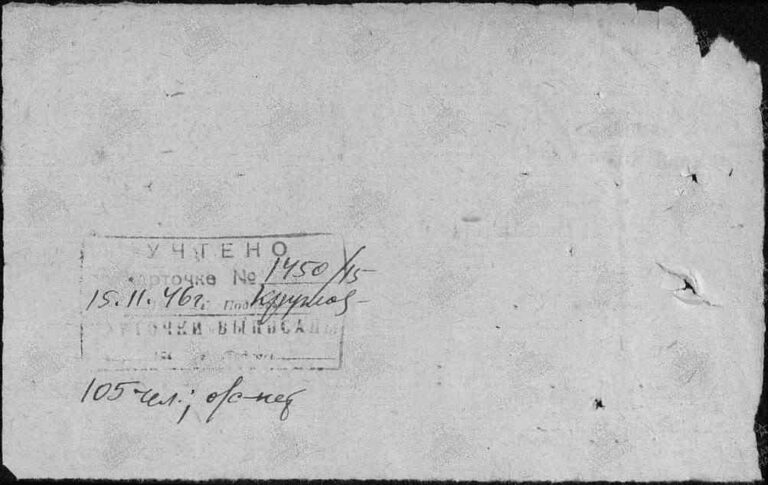 УЧТЕНО
карточке № 1450/15
15.11.46г. Под
КАРТОЧКИ ВЫПИСАНЫ
105 чел.; о/с-нет